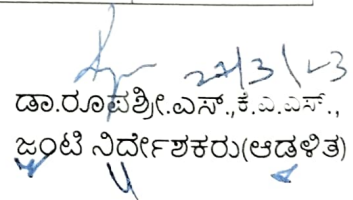 27/3/23
ಡಾ.ರೂಪಶ್ರೀ.ಎಸ್.,ಕೆ.ಎ.ಎಸ್.,
ಜಂಟಿ ನಿರ್ದೇಶಕರು(ಆಡಳಿತ)